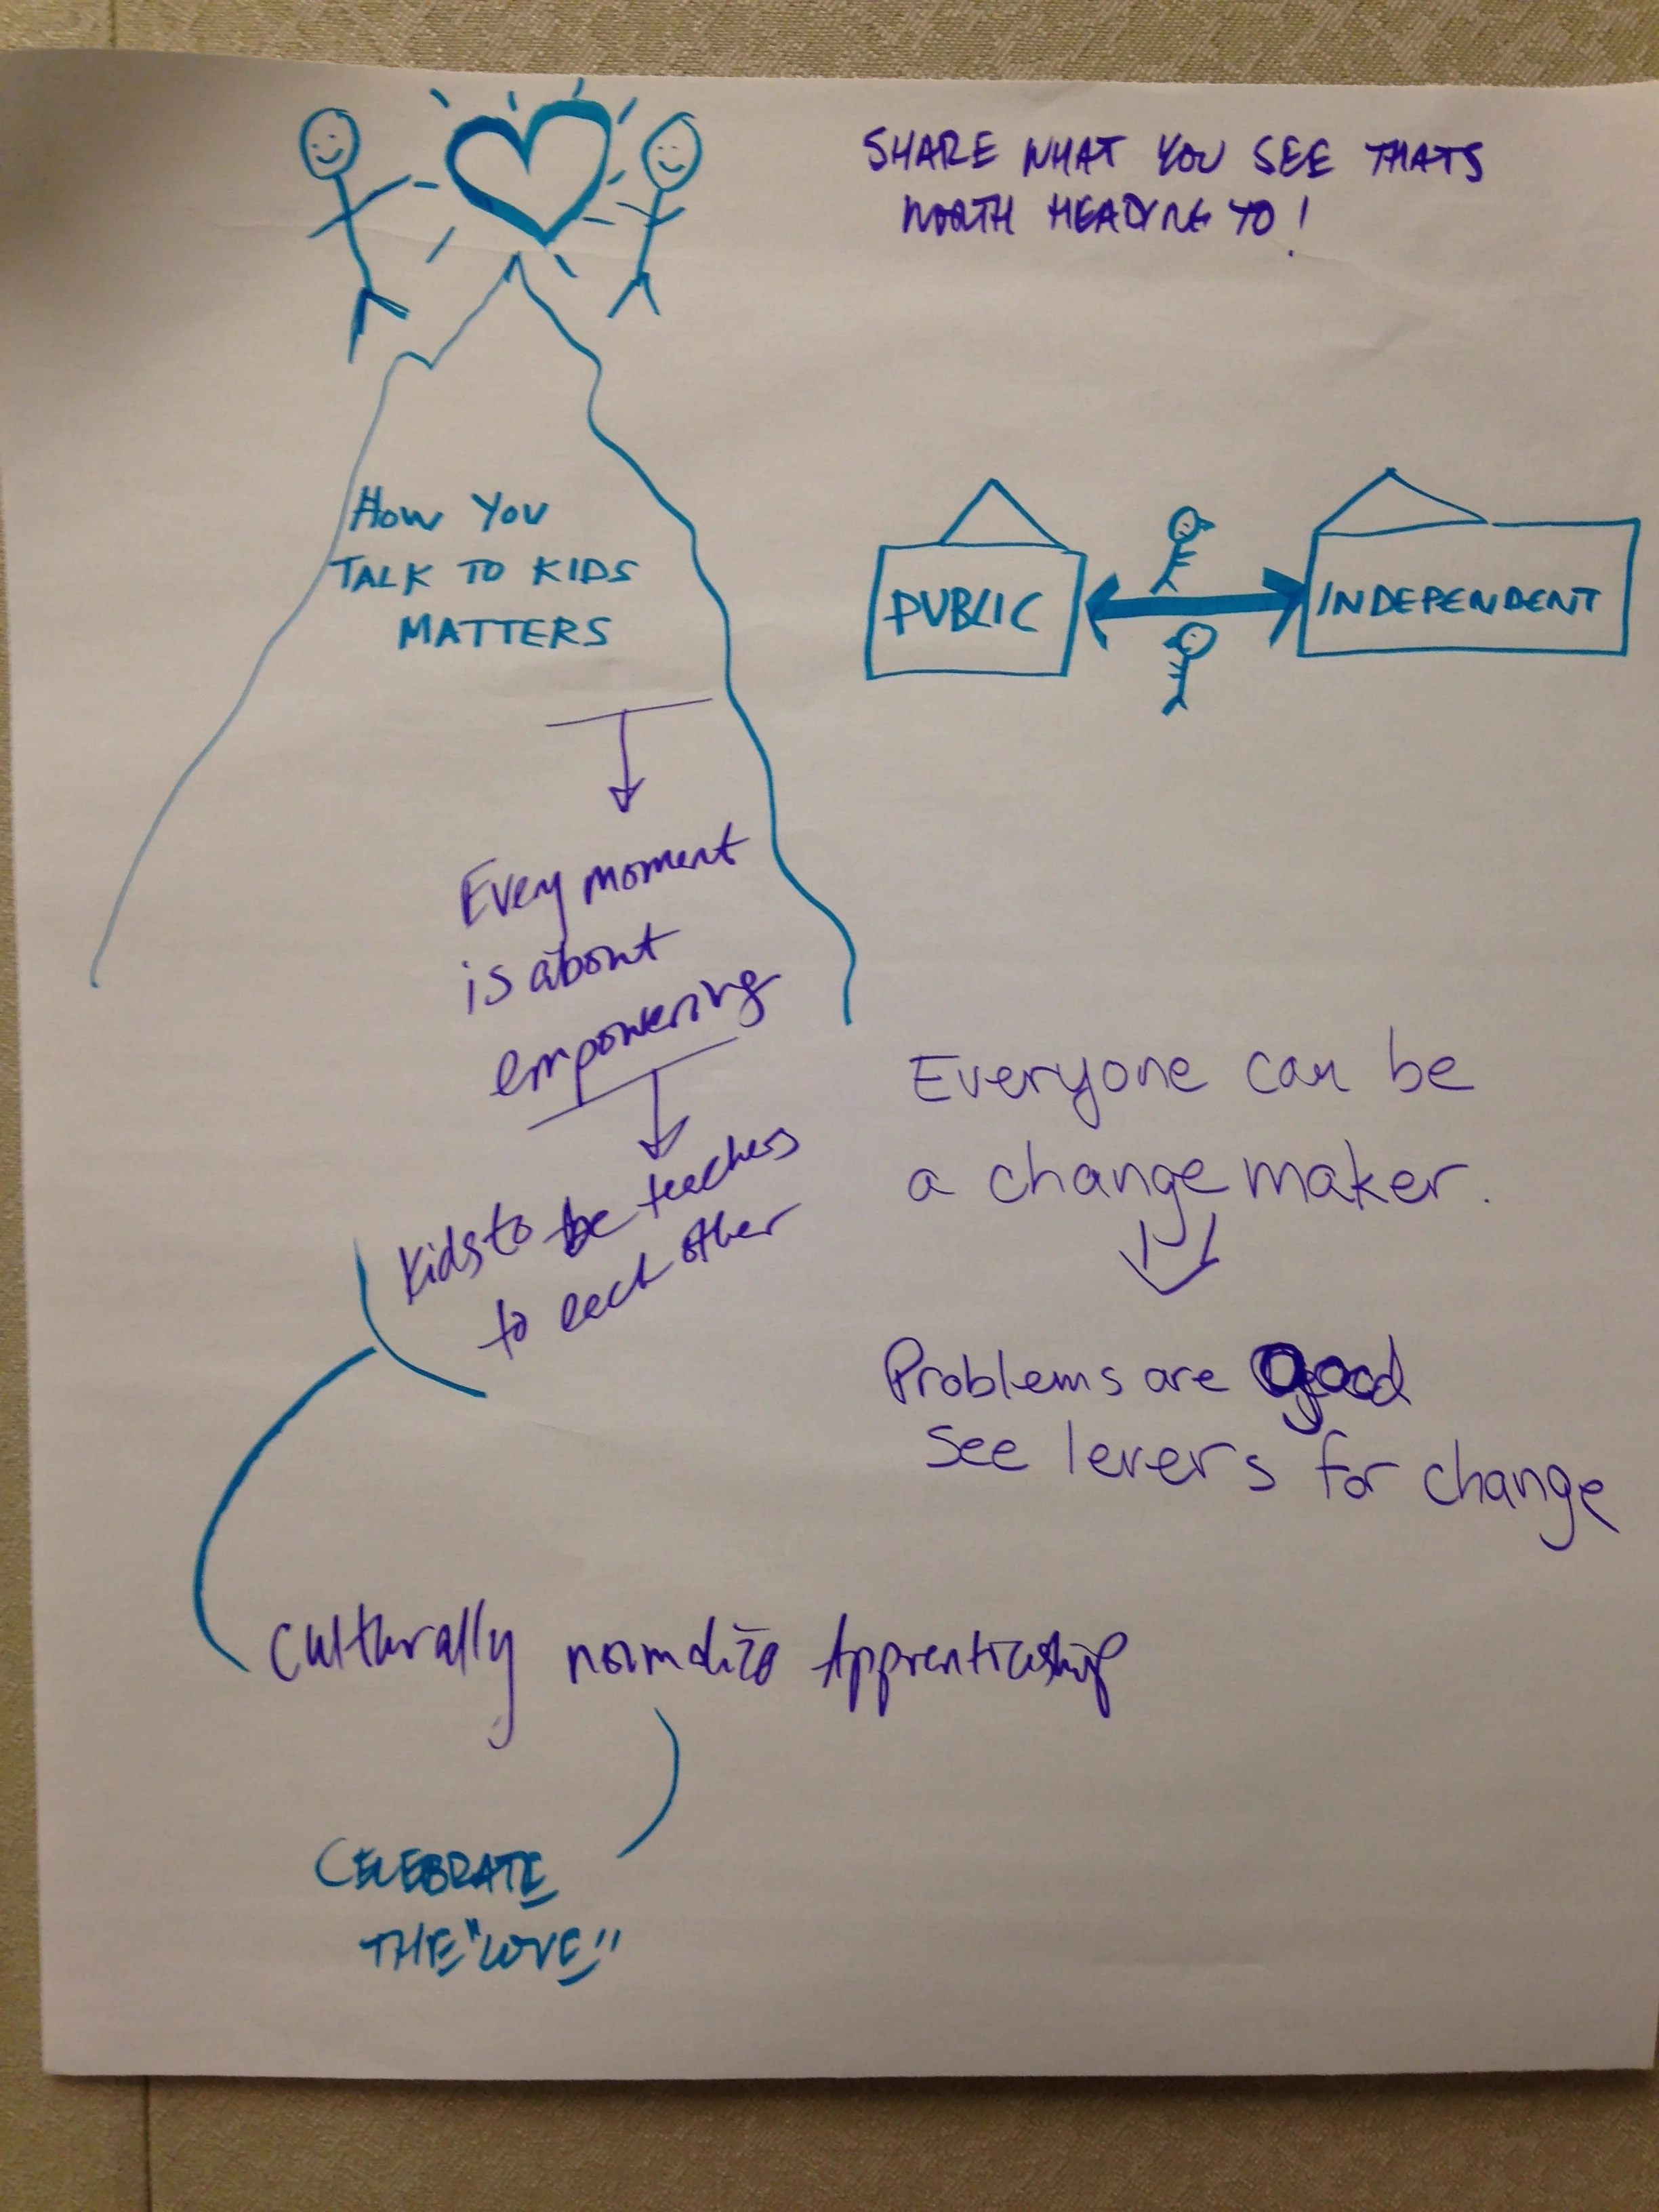 SHARE WHAT YOU SEE THATS
WORTH HEADING TO!
HOW YOU
TALK TO KIDS
MATTERS
PUBLIC
INDEPENDENT
Every moment
is about
empowering
kids to be teachers
to each other
Everyone can be
a change maker.
Problems are good
see levers for change
Culturally normalize Apprenticeship
CELEBRATE
THE "LOVE"